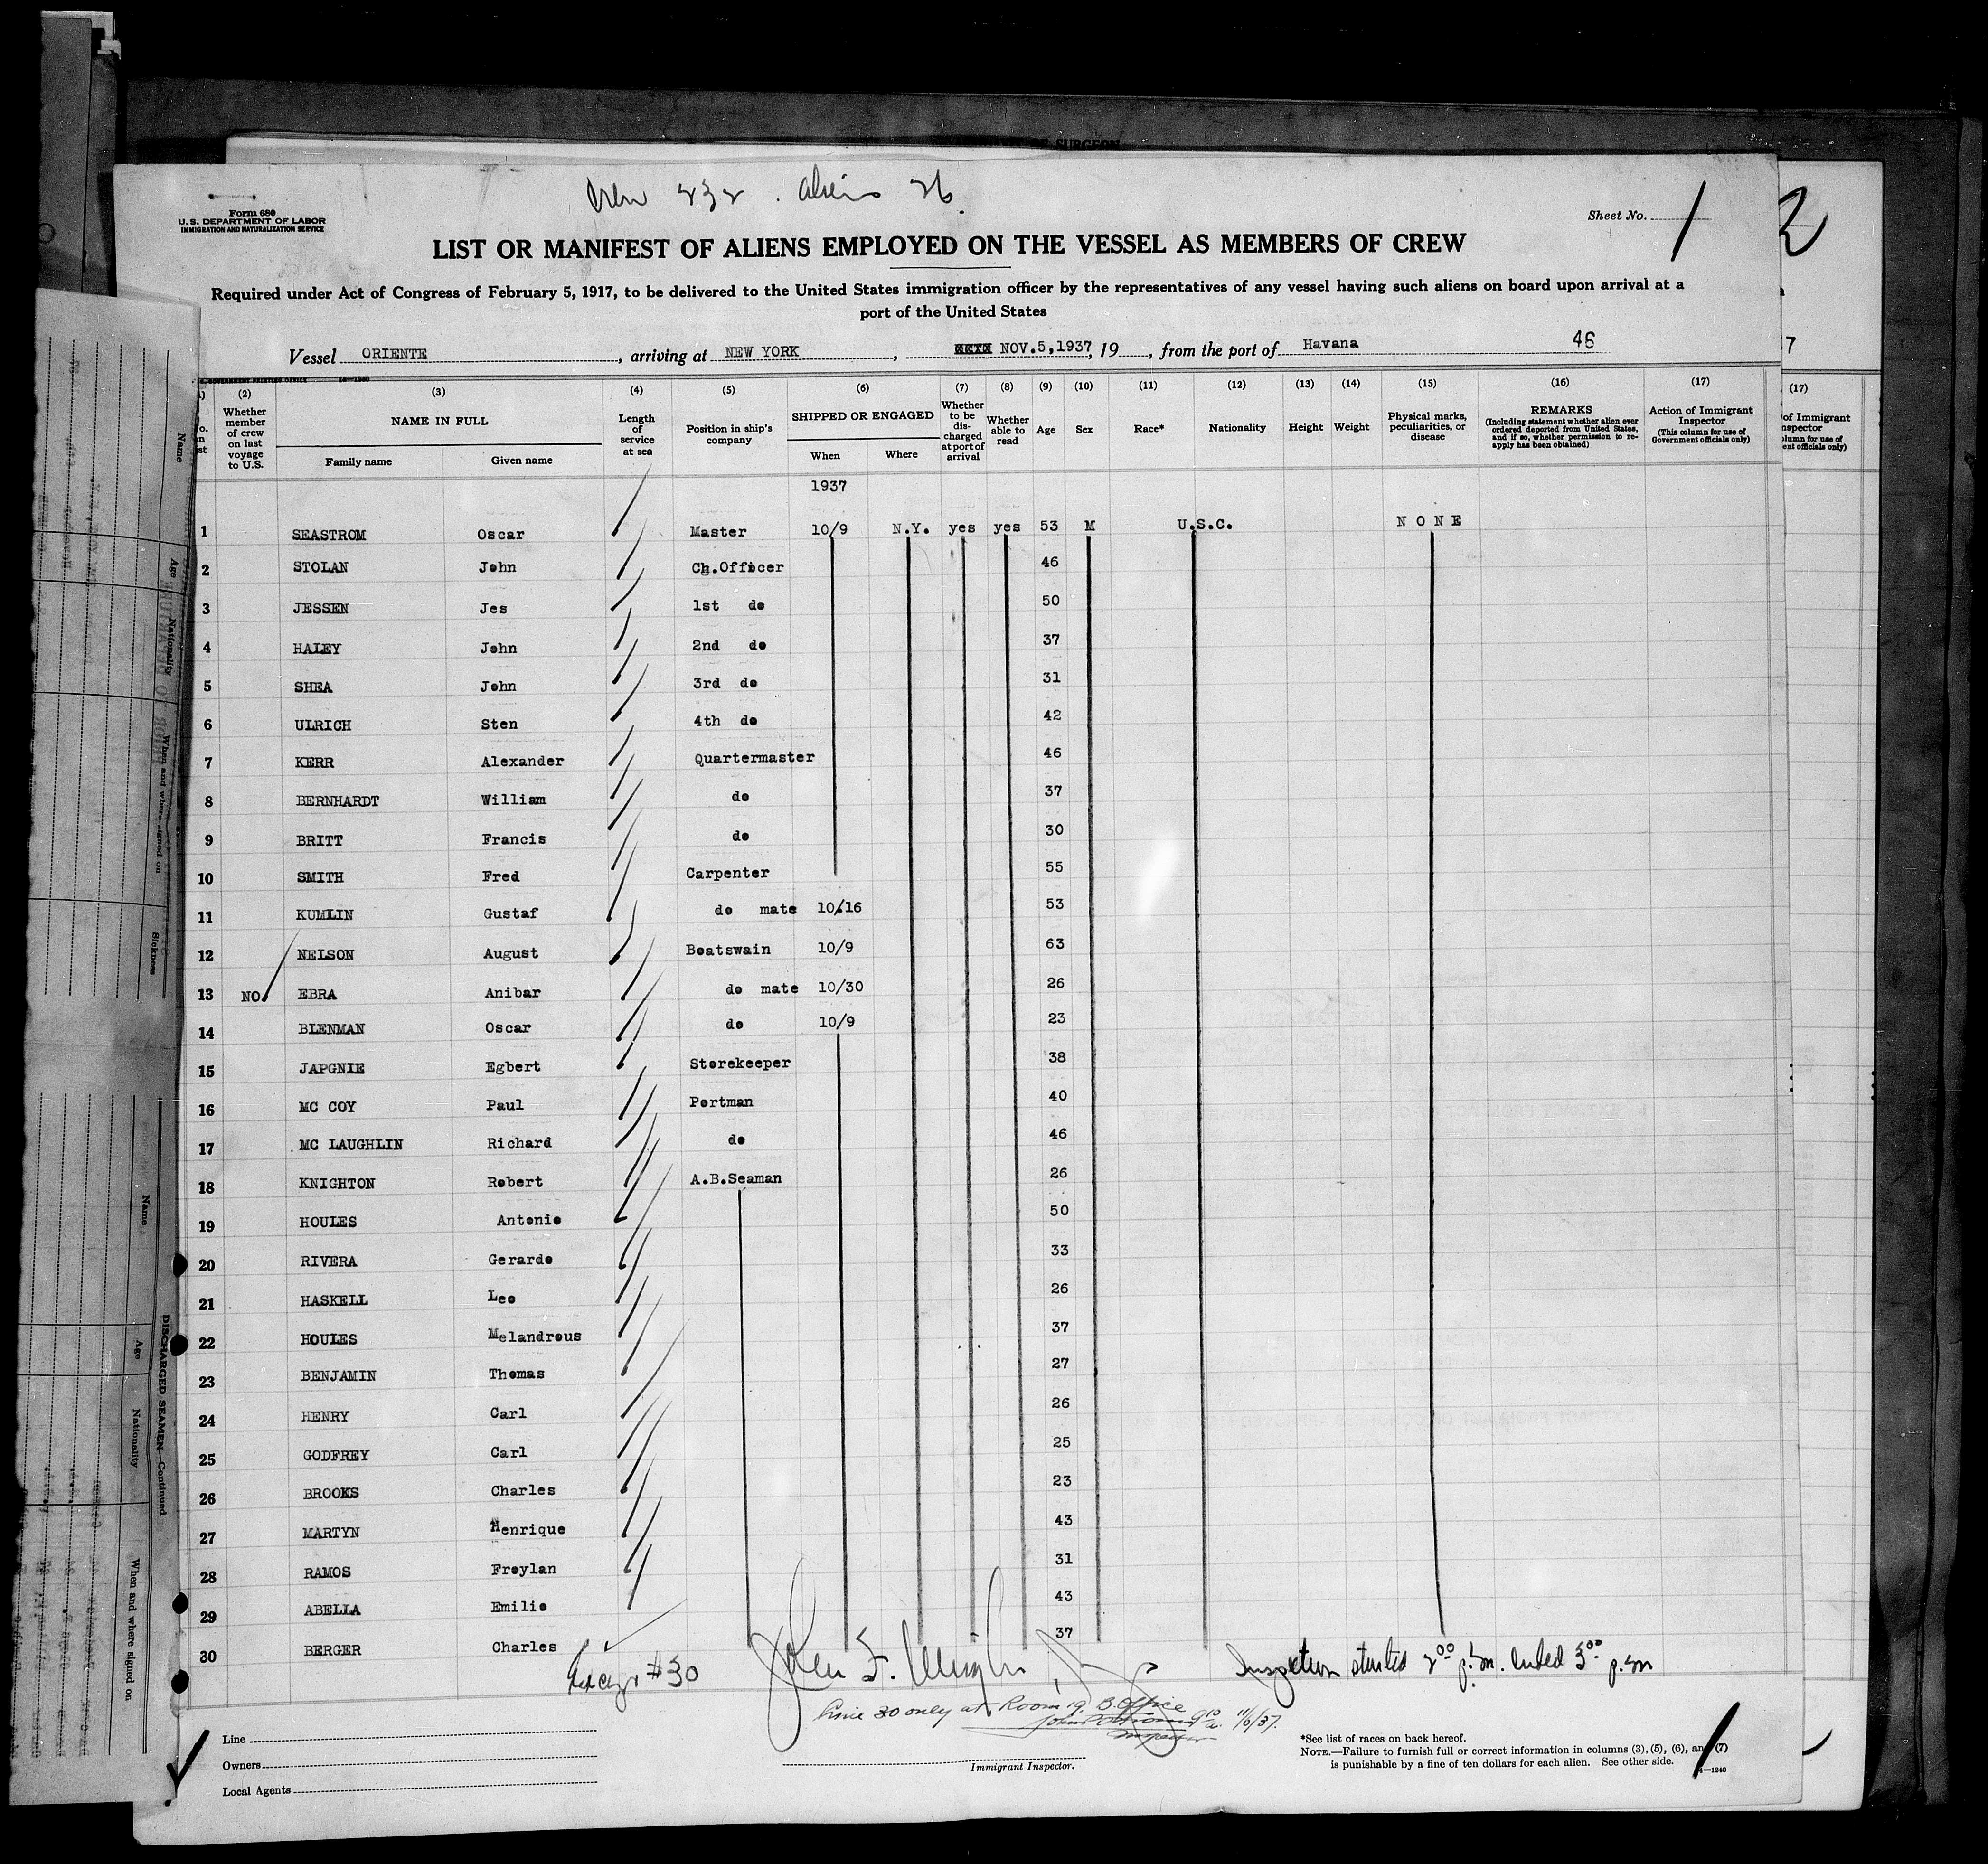 OF SURGEON
Crew 232 . aliens 26.
Form 680
U. S. DEPARTMENT OF LABOR
IMMIGRATION AND NATURALIZATION SERVICE
Sheet No. 1
2
LIST OR MANIFEST OF ALIENS EMPLOYED ON THE VESSEL AS MEMBERS OF CREW
Required under Act of Congress of February 5, 1917, to be delivered to the United States immigration officer by the representatives of any vessel having such aliens on board upon arrival at a
port of the United States
Vessel ORIENTE, arriving at NEW YORK, NOV.5,1937, 19, from the port of Havana 46
(2) (3) (4) (5) (6) (7) (8) (9) (10) (11) (12) (13) (14) (15) (16) (17)
Whether member of crew on last voyage to U.S.
NAME IN FULL
Family name Given name
Length of service at sea
Position in ship's company
SHIPPED OR ENGAGED
When Where
Whether to be discharged at port of arrival
Whether able to read
Age Sex Race* Nationality Height Weight
Physical marks, peculiarities, or disease
REMARKS
(Including statement whether alien ever ordered deported from United States, and if so, whether permission to reapply has been obtained)
Action of Immigrant Inspector
(This column for use of Government officials only)
1937
1 SEASTROM Oscar Master 10/9 N.Y. yes yes 53 M U.S.C. N O N E
2 STOLAN John Ch.Officer 46
3 JESSEN Jes 1st do 50
4 HALEY John 2nd do 37
5 SHEA John 3rd do 31
6 ULRICH Sten 4th do 42
7 KERR Alexander Quartermaster 46
8 BERNHARDT William do 37
9 BRITT Francis do 30
10 SMITH Fred Carpenter 55
11 KUMLIN Gustaf do mate 10/16 53
12 NELSON August Boatswain 10/9 63
13 NO. EBRA Anibar do mate 10/30 26
14 BLENMAN Oscar do 10/9 23
15 JAPGNIE Egbert Storekeeper 38
16 MC COY Paul Portman 40
17 MC LAUGHLIN Richard do 46
18 KNIGHTON Robert A.B.Seaman 26
19 HOULES Antonio 50
20 RIVERA Gerardo 33
21 HASKELL Leo 26
22 HOULES Melandrous 37
23 BENJAMIN Thomas 27
24 HENRY Carl 26
25 GODFREY Carl 25
26 BROOKS Charles 23
27 MARTYN Henrique 43
28 RAMOS Froylan 31
29 ABELLA Emilio 43
30 BERGER Charles 37
Except #30
Inspection started 2 00 p.m. ended 3 00 p.m
Line 30 only at Room 19, B. Office
11/6/37.
Line
Owners
Local Agents
Immigrant Inspector.
*See list of races on back hereof.
NOTE.—Failure to furnish full or correct information in columns (3), (5), (6), and (7)
is punishable by a fine of ten dollars for each alien. See other side.
Name
Age
Nationality
When and where signed on
Sickness
DISCHARGED SEAMEN—Continued
Name
Age
Nationality
When and where signed on